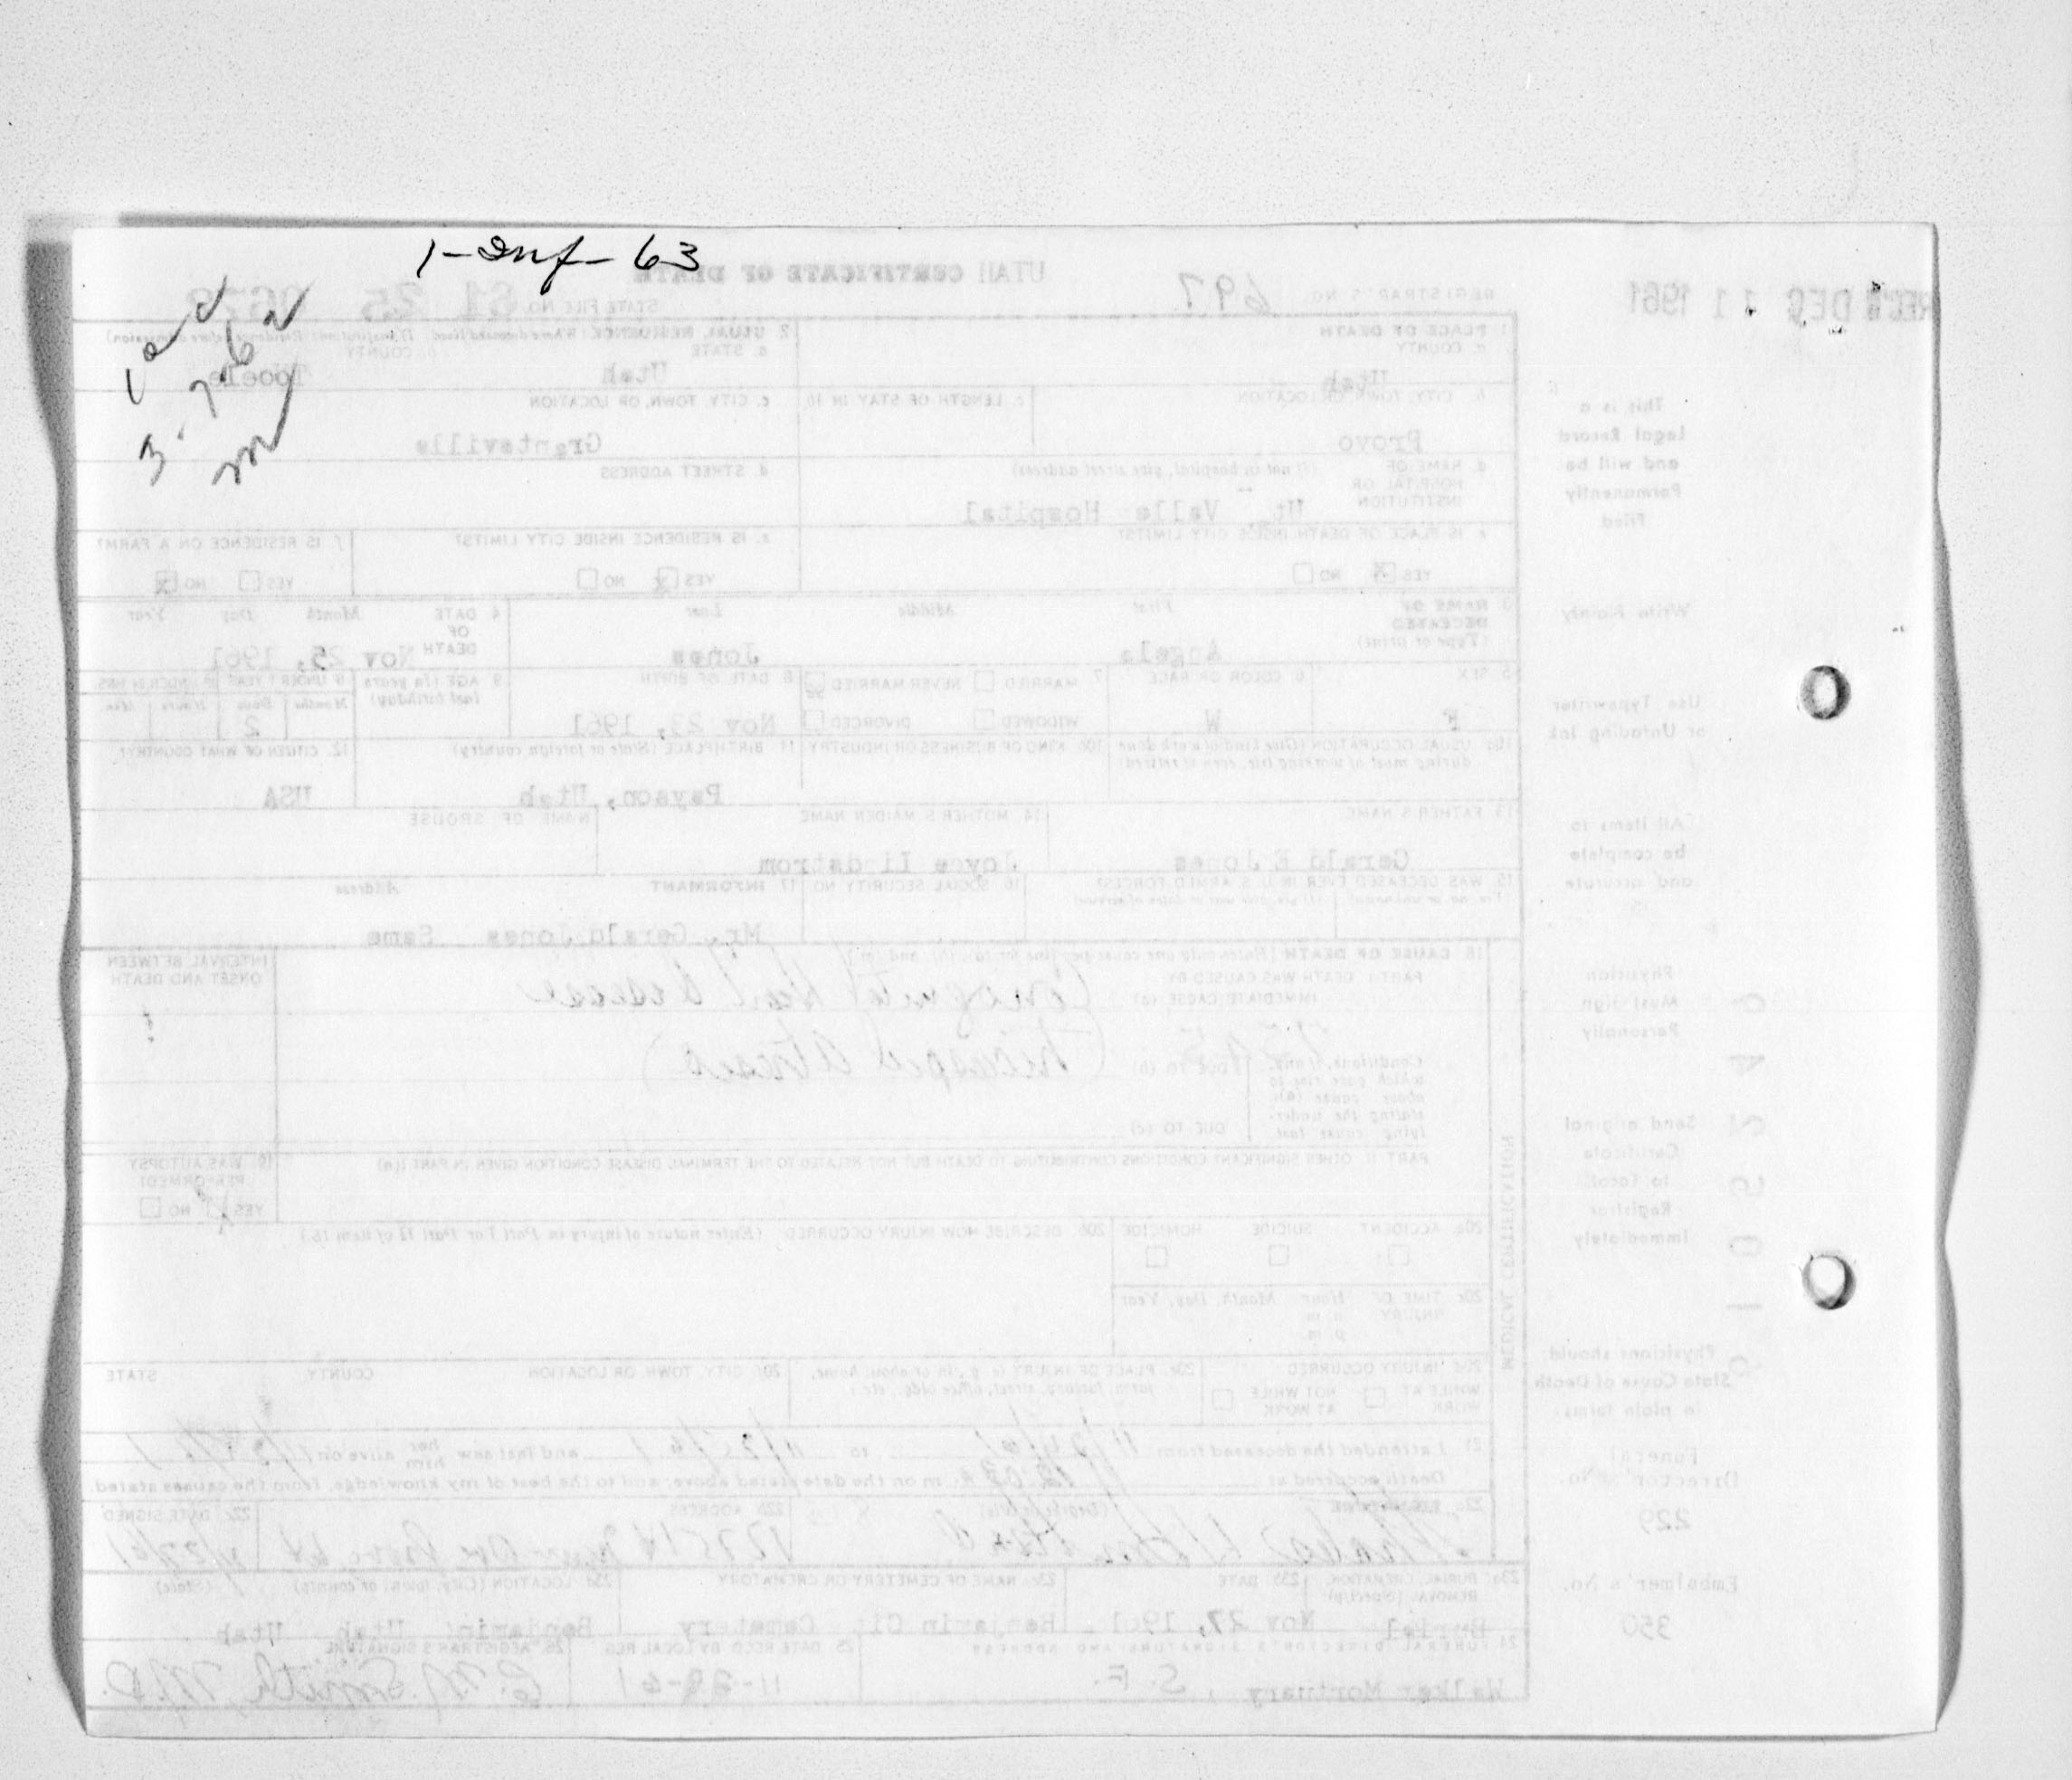 1-Inf-63
REC'D DEC 11 1961
UTAH CERTIFICATE OF DEATH
REGISTRAR'S NO. 697
STATE FILE NO. 61 25
This is a
Legal Record
and will be
Permanently
Filed
Write Plainly
Use Typewriter
or Unfading Ink
All items to
be complete
and accurate
Physician
Must sign
Personally
Send original
Certificate
to Local
Registrar
Immediately
Physicians should
State Cause of Death
in plain terms.
Funeral
Director's No.
229
Embalmer's No.
350
1. PLACE OF DEATH
a. COUNTY
Utah
2. USUAL RESIDENCE (Where deceased lived. If institution: Residence before admission)
a. STATE
Utah
b. COUNTY
Tooele
b. CITY, TOWN OR LOCATION
Provo
c. LENGTH OF STAY IN 1b
c. CITY, TOWN, OR LOCATION
Grantsville
d. NAME OF HOSPITAL OR INSTITUTION (If not in hospital, give street address)
Ut. Valle Hospital
d. STREET ADDRESS
e. IS PLACE OF DEATH INSIDE CITY LIMITS?
YES X NO
e. IS RESIDENCE INSIDE CITY LIMITS?
YES X NO
f. IS RESIDENCE ON A FARM?
YES NO X
3. NAME OF DECEASED (Type or print)
First Middle Last
Angela Jones
4. DATE OF DEATH
Month Day Year
Nov 25, 1961
5. SEX
F
6. COLOR OR RACE
W
7. MARRIED NEVER MARRIED
WIDOWED DIVORCED
8. DATE OF BIRTH
Nov 23, 1961
9. AGE (In years last birthday)
IF UNDER 1 YEAR
Months Days
2
IF UNDER 24 HRS
Hours Min.
10a. USUAL OCCUPATION (Give kind of work done during most of working life, even if retired)
10b. KIND OF BUSINESS OR INDUSTRY
11. BIRTHPLACE (State or foreign country)
Payson, Utah
12. CITIZEN OF WHAT COUNTRY?
USA
13. FATHER'S NAME
Gerald E Jones
14. MOTHER'S MAIDEN NAME
Joyce Lindstrom
NAME OF SPOUSE
15. WAS DECEASED EVER IN U.S. ARMED FORCES?
(Yes, no, or unknown) (If yes, give war or dates of service)
16. SOCIAL SECURITY NO.
17. INFORMANT Address
Mr. Gerald Jones Same
MEDICAL CERTIFICATION
18. CAUSE OF DEATH [Enter only one cause per line for (a), (b), and (c)]
PART I. DEATH WAS CAUSED BY
IMMEDIATE CAUSE (a) Congenital Heart Disease
(Tricuspid Atresia)
Conditions, if any, which gave rise to above cause (a), stating the underlying cause last
DUE TO (b)
DUE TO (c)
INTERVAL BETWEEN ONSET AND DEATH
PART II. OTHER SIGNIFICANT CONDITIONS CONTRIBUTING TO DEATH BUT NOT RELATED TO THE TERMINAL DISEASE CONDITION GIVEN IN PART I(a)
19. WAS AUTOPSY PERFORMED?
YES NO
20a. ACCIDENT SUICIDE HOMICIDE
20b. DESCRIBE HOW INJURY OCCURRED (Enter nature of injury in Part I or Part II of item 18.)
20c. TIME OF INJURY
Hour Month, Day, Year
a.m.
p.m.
20d. INJURY OCCURRED
WHILE AT WORK NOT WHILE AT WORK
20e. PLACE OF INJURY (e.g., in or about home, farm, factory, street, office bldg., etc.)
20f. CITY, TOWN, OR LOCATION COUNTY STATE
21. I attended the deceased from 11/24/61 to 11/25/61 and last saw her him alive on
Death occurred at 12:03 A. m on the date stated above; and to the best of my knowledge, from the causes stated.
22a. SIGNATURE (Degree or title)
22b. ADDRESS
22c. DATE SIGNED
11/27/61
23a. BURIAL, CREMATION, REMOVAL (Specify)
Burial
23b. DATE
Nov 27, 1961
23c. NAME OF CEMETERY OR CREMATORY
Benjamin Cit Cemetery
23d. LOCATION (City, town, or county) (State)
Benjamin Utah Utah
24. FUNERAL DIRECTOR'S SIGNATURE AND ADDRESS
Walker Mortuary, S. F.
25. DATE REC'D BY LOCAL REG.
11-28-61
26. REGISTRAR'S SIGNATURE
C. M. Smith, M.D.